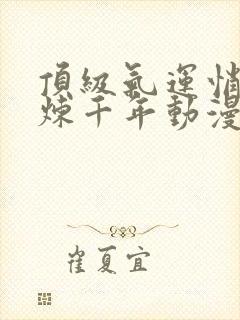 頂級氣運悄
煉千年動漫
崔夏宜